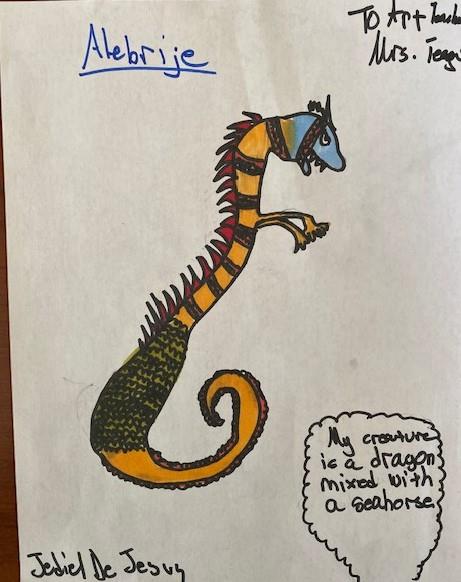 Alebrije
To Art
Mrs.
My creature
is a dragon
mixed with
a seahorse.
Jediel De Jesus